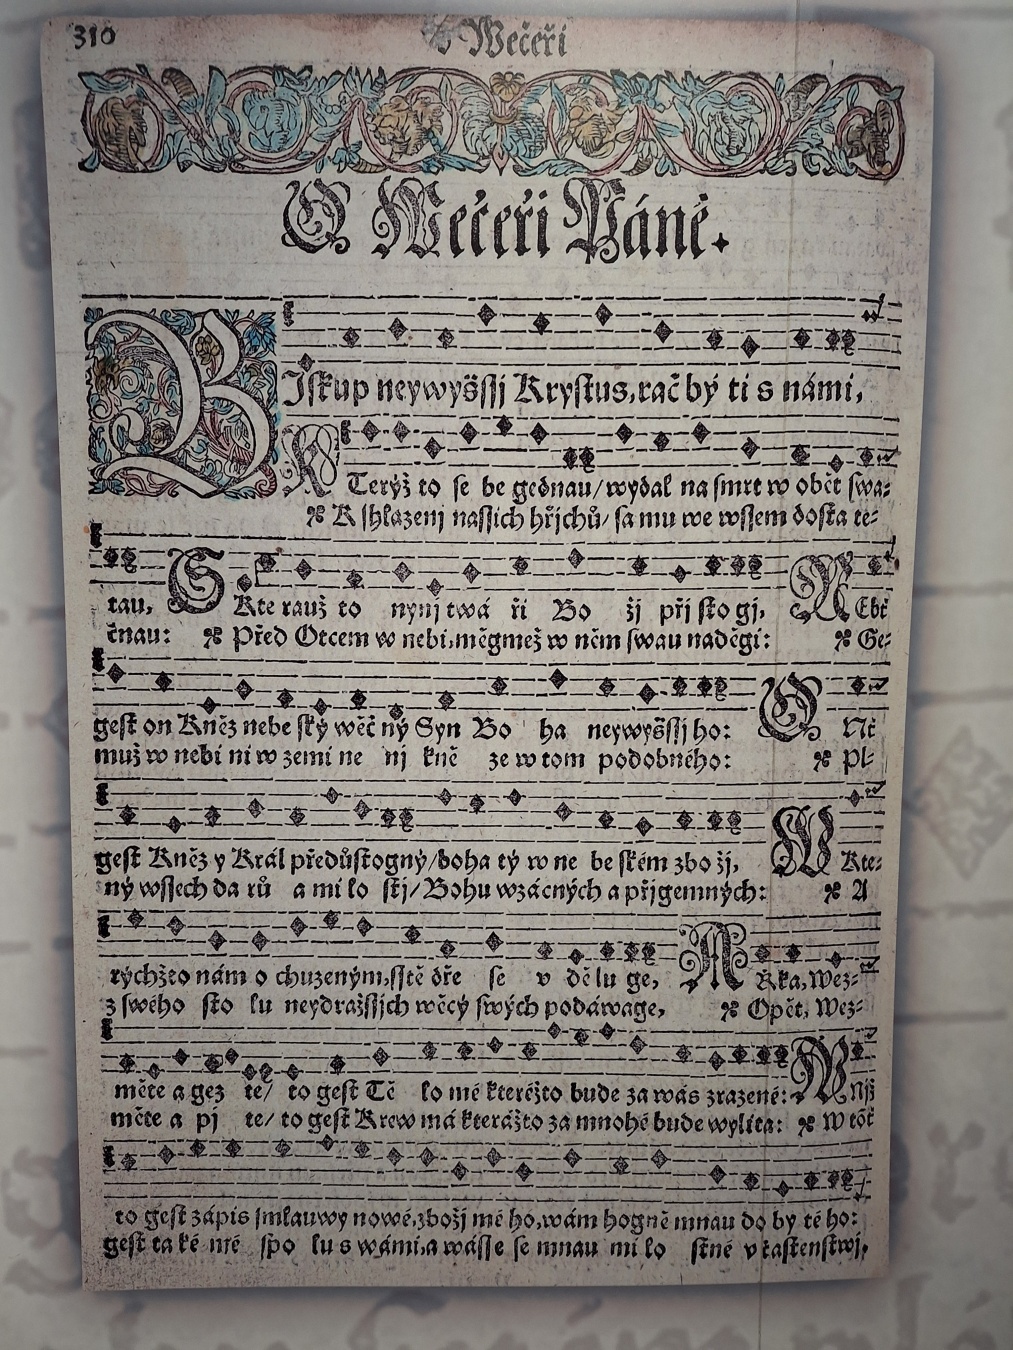 310 Wečeři
O Wečeři Páně.
BIskup neywyšssj Krystus, rač by ti s námi,
KTerýž to se be gednau/ wydal na smrt w obět swa-
K shlazenj nassich hřjchů/ sa mu we wssem dosta te-
tau, S Kte rauž to nynj twá ři Bo žj při sto gj, NEbť
čnau: Před Otcem w nebi, měgmež w něm swau naděgi: Ge-
gest on Kněz nebe ský wěč ný Syn Bo ha neywyšssj ho: O Nť
muž w nebi ni w zemi ne nj kně ze w tom podobného: Pl-
gest Kněz y Král předůstogný/ boha tý w ne be ském zbo žj, Kte-
ný wssech da rů a mi lo stj/ Bohu wzácných a přjgemných: A
rýchžto nám o chuzeným, sstě dře se v dě lu ge, Ř ka, Wez-
z swého sto lu neydražssjch wěcý swých podáwage, Opět, Wez-
měte a gez te/ to gest Tě lo mé kteréžto bude za wás zrazené:
měte a pj te/ to gest Krew má kterážto za mnohé bude wylita: W tôť
to gest zápis smlauwy nowé, zbožj mé ho, wám hogně mnau do by té ho:
gest ta ké mé spo lu s wámi, a wásse se mnau mi lo stné v častenstwj,